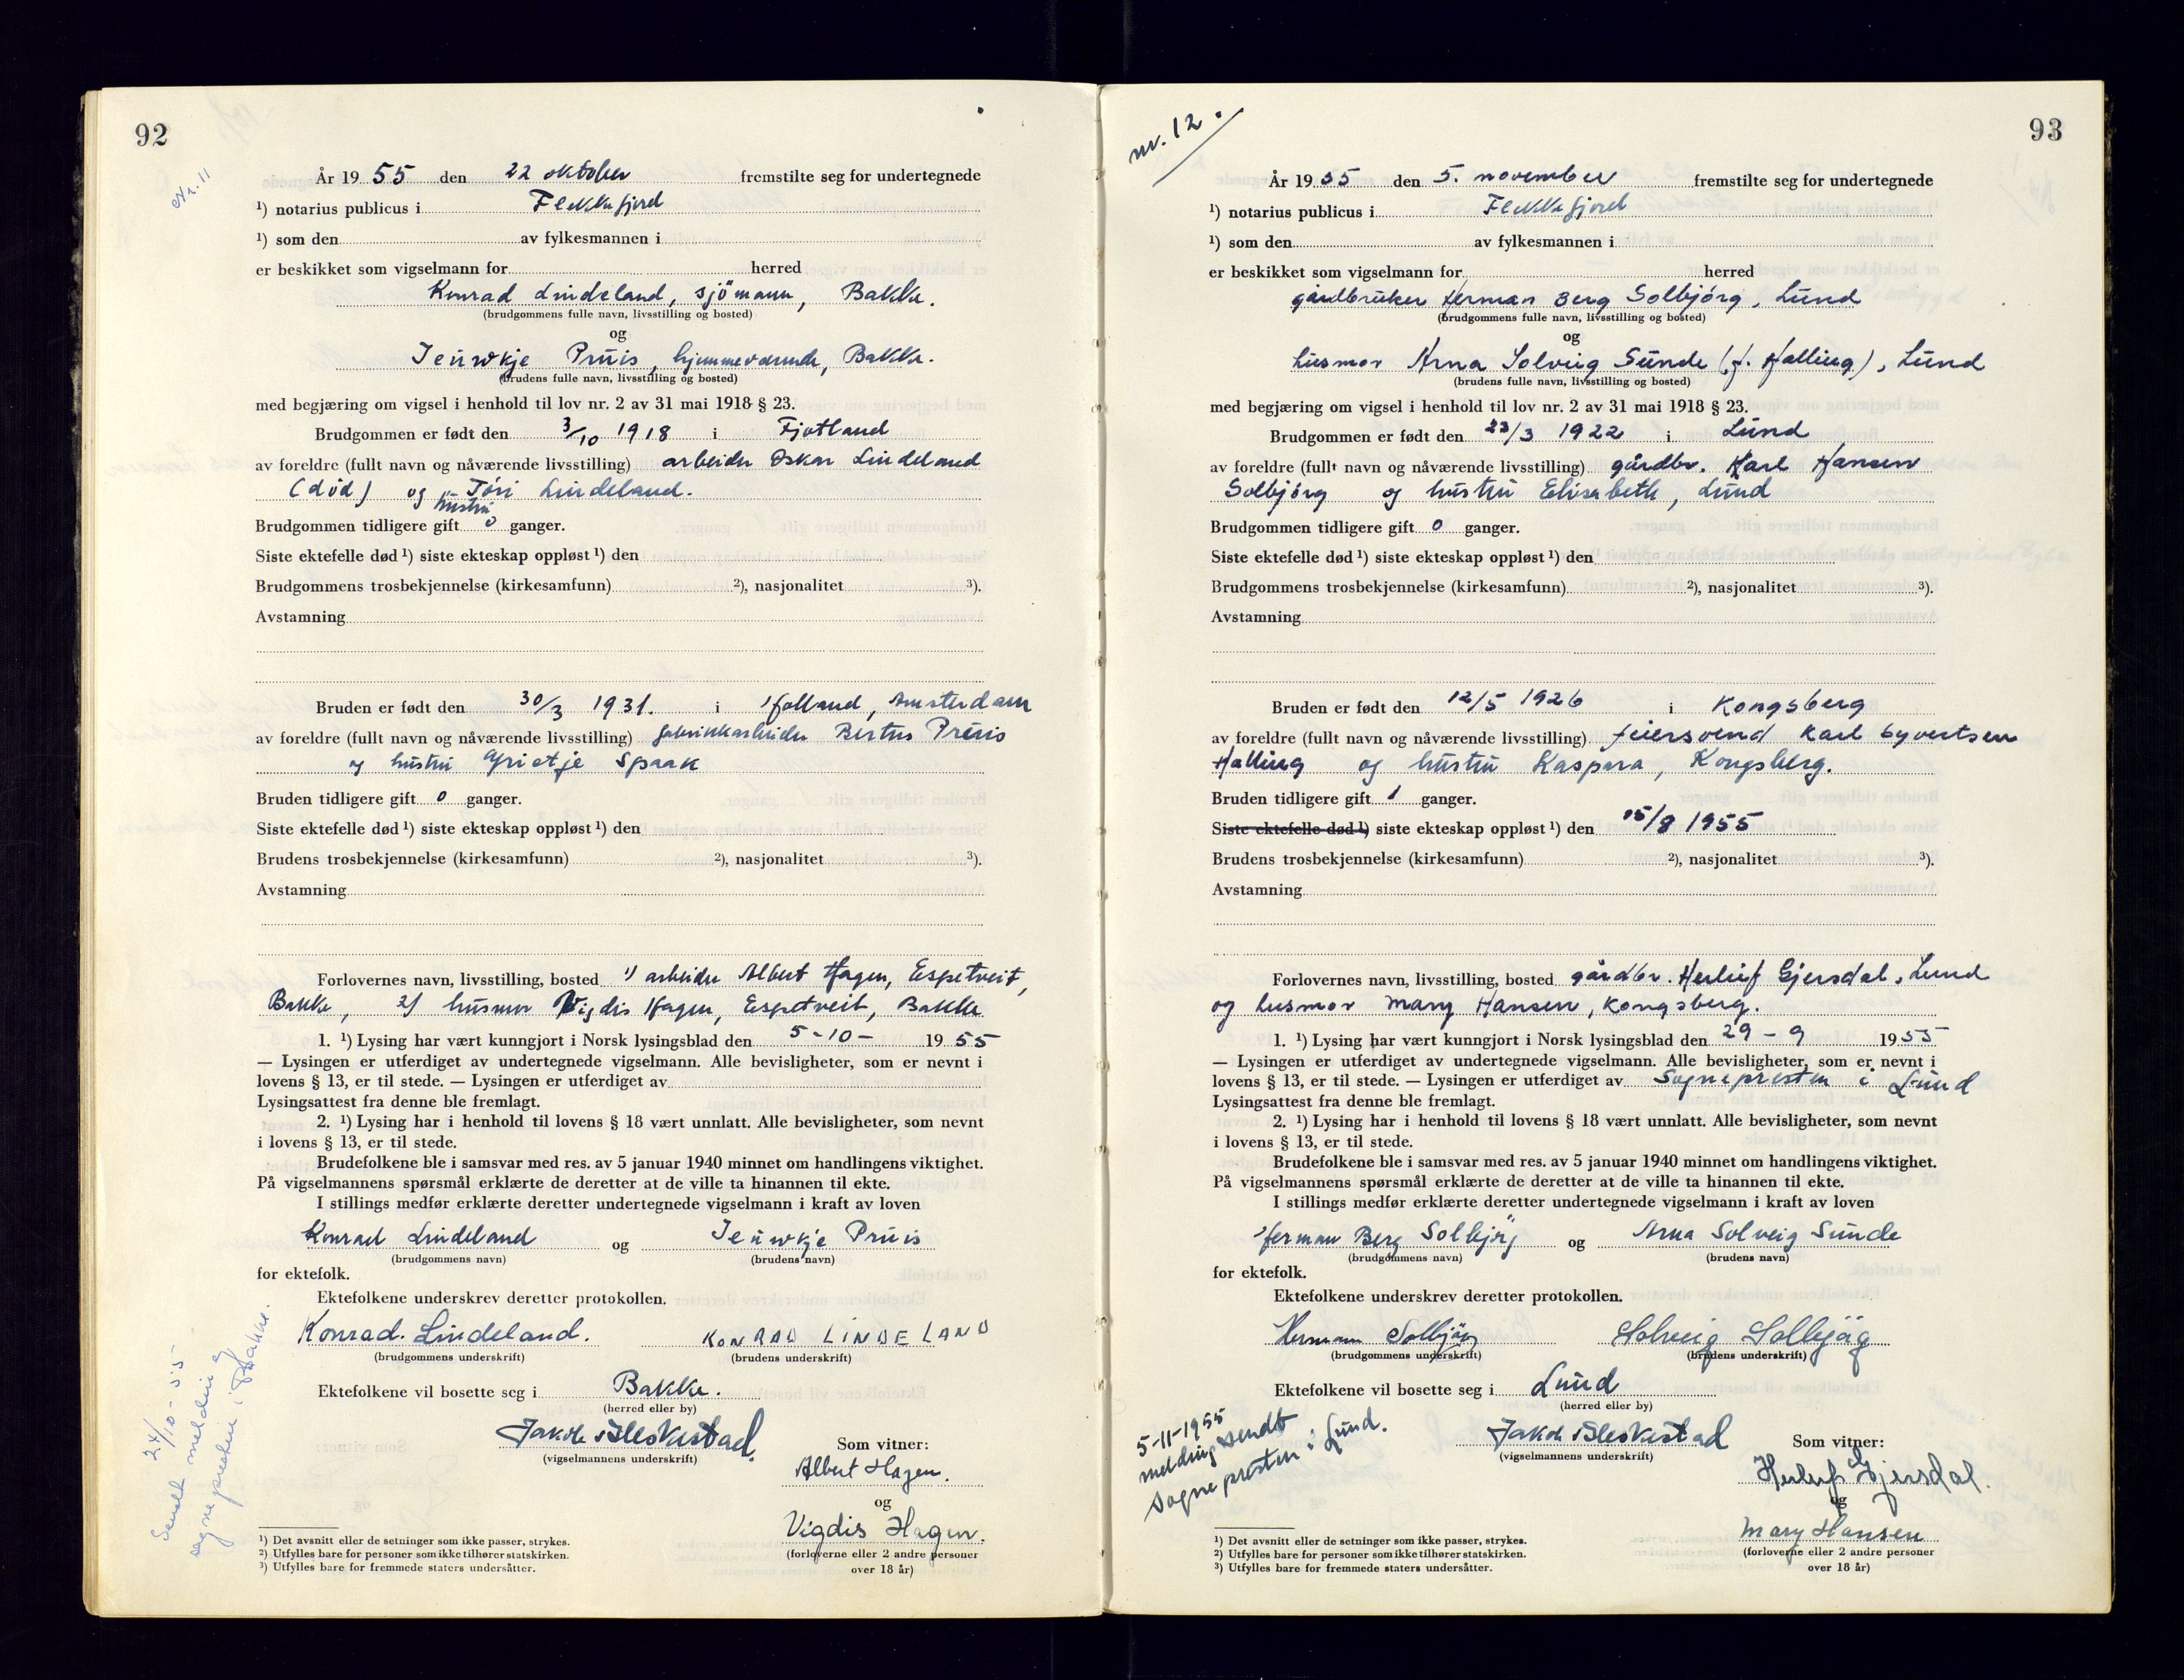 92
Nr. 11
År 19 55 den 22 oktober fremstilte seg for undertegnede
¹) notarius publicus i Flekkefjord
¹) som den av fylkesmannen i
er beskikket som vigselmann for herred
Konrad Lindeland, sjömann, Bakke.
(brudgommens fulle navn, livsstilling og bosted)
og
Jeuwkje Pruis, hjemmeværende, Bakke.
(brudens fulle navn, livsstilling og bosted)
med begjæring om vigsel i henhold til lov nr. 2 av 31 mai 1918 § 23.
Brudgommen er født den 3/10 1918 i Fjotland
av foreldre (fullt navn og nåværende livsstilling) arbeider Oskar Lindeland
(død) og hustru Tóri Lindeland.
Brudgommen tidligere gift 0 ganger.
Siste ektefelle død ¹) siste ekteskap oppløst ¹) den
Brudgommens trosbekjennelse (kirkesamfunn) ²), nasjonalitet ³).
Avstamning
Bruden er født den 30/3 1931. i Holland, Amsterdam
av foreldre (fullt navn og nåværende livsstilling) fabrikkarbeider Bertus Pruis
og hustru Grietje Spaak
Bruden tidligere gift 0 ganger.
Siste ektefelle død ¹) siste ekteskap oppløst ¹) den
Brudens trosbekjennelse (kirkesamfunn) ²), nasjonalitet ³).
Avstamning
Forlovernes navn, livsstilling, bosted 1) arbeider Albert Hagen, Espetveit,
Bakke, 2) husmor Vigdis Hagen, Espetveit, Bakke
1. ¹) Lysing har vært kunngjort i Norsk lysingsblad den 5-10- 19 55
— Lysingen er utferdiget av undertegnede vigselmann. Alle bevisligheter, som er nevnt i
lovens § 13, er til stede. — Lysingen er utferdiget av
Lysingsattest fra denne ble fremlagt.
2. ¹) Lysing har i henhold til lovens § 18 vært unnlatt. Alle bevisligheter, som nevnt
i lovens § 13, er til stede.
Brudefolkene ble i samsvar med res. av 5 januar 1940 minnet om handlingens viktighet.
På vigselmannens spørsmål erklærte de deretter at de ville ta hinannen til ekte.
I stillings medfør erklærte deretter undertegnede vigselmann i kraft av loven
Konrad Lindeland og Jeuwkje Pruis
(brudgommens navn) (brudens navn)
for ektefolk.
Ektefolkene underskrev deretter protokollen.
Konrad. Lindeland. KONRAD LINDELAND
(brudgommens underskrift) (brudens underskrift)
Ektefolkene vil bosette seg i Bakke.
(herred eller by)
Jakob Bleskestad.
(vigselmannens underskrift)
Som vitner:
Albert Hagen.
og
Vigdis Hagen.
(forloverne eller 2 andre personer
over 18 år)
24/10-55
Sendt melding
sognepresten i Bakke.
¹) Det avsnitt eller de setninger som ikke passer, strykes.
²) Utfylles bare for personer som ikke tilhører statskirken.
³) Utfylles bare for fremmede staters undersåtter.
93
nr. 12.
År 19 55 den 5. november fremstilte seg for undertegnede
¹) notarius publicus i Flekkefjord
¹) som den av fylkesmannen i
er beskikket som vigselmann for herred
gårdbruker Herman Berg Solbjórg, Lund
(brudgommens fulle navn, livsstilling og bosted)
og
husmor Arna Solveig Sunde (f. Halling), Lund
(brudens fulle navn, livsstilling og bosted)
med begjæring om vigsel i henhold til lov nr. 2 av 31 mai 1918 § 23.
Brudgommen er født den 23/3 1922 i Lund
av foreldre (fullt navn og nåværende livsstilling) gårdbr. Karl Hansen
Solbjórg og hustru Elisabeth, Lund
Brudgommen tidligere gift 0 ganger.
Siste ektefelle død ¹) siste ekteskap oppløst ¹) den
Brudgommens trosbekjennelse (kirkesamfunn) ²), nasjonalitet ³).
Avstamning
Bruden er født den 12/5 1926 i Kongsberg
av foreldre (fullt navn og nåværende livsstilling) feiersvend Karl Syvertsen
Halling og hustru Kaspara, Kongsberg.
Bruden tidligere gift 1 ganger.
Siste ektefelle død ¹) siste ekteskap oppløst ¹) den 15/8 1955
Brudens trosbekjennelse (kirkesamfunn) ²), nasjonalitet ³).
Avstamning
Forlovernes navn, livsstilling, bosted gårdbr. Herluf Gjersdal, Lund
og husmor Mary Hansen, Kongsberg.
1. ¹) Lysing har vært kunngjort i Norsk lysingsblad den 29-9 19 55
— Lysingen er utferdiget av undertegnede vigselmann. Alle bevisligheter, som er nevnt i
lovens § 13, er til stede. — Lysingen er utferdiget av Sognepresten i Lund
Lysingsattest fra denne ble fremlagt.
2. ¹) Lysing har i henhold til lovens § 18 vært unnlatt. Alle bevisligheter, som nevnt
i lovens § 13, er til stede.
Brudefolkene ble i samsvar med res. av 5 januar 1940 minnet om handlingens viktighet.
På vigselmannens spørsmål erklærte de deretter at de ville ta hinannen til ekte.
I stillings medfør erklærte deretter undertegnede vigselmann i kraft av loven
Herman Berg Solbjörg og Arna Solveig Sunde
(brudgommens navn) (brudens navn)
for ektefolk.
Ektefolkene underskrev deretter protokollen.
Herman Solbjørg Solveig Solbjørg
(brudgommens underskrift) (brudens underskrift)
Ektefolkene vil bosette seg i Lund
(herred eller by)
5-11-1955
melding sendt
Sognepresten i Lund.
Jakob Bleskestad
(vigselmannens underskrift)
Som vitner:
Herluf Gjersdal.
og
Mary Hansen
(forloverne eller 2 andre personer
over 18 år)
¹) Det avsnitt eller de setninger som ikke passer, strykes.
²) Utfylles bare for personer som ikke tilhører statskirken.
³) Utfylles bare for fremmede staters undersåtter.